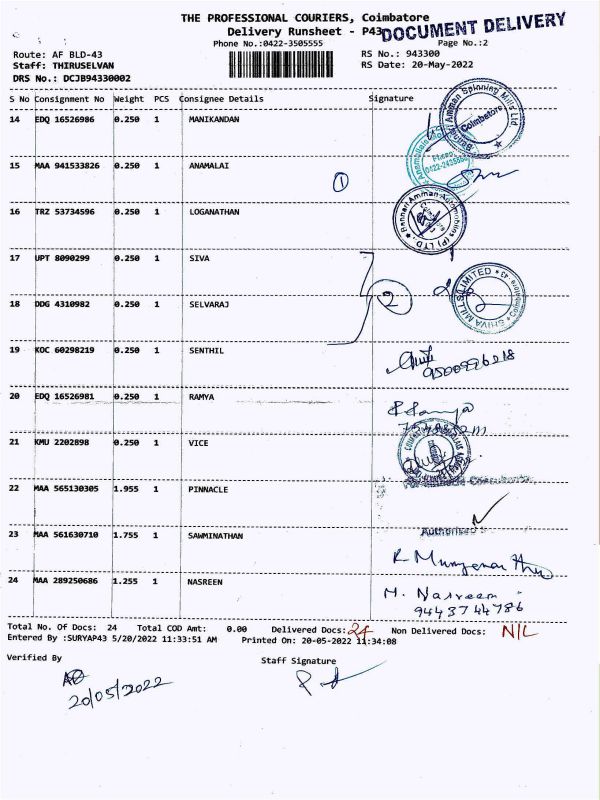 THE PROFESSIONAL COURIERS, Coimbatore
Delivery Runsheet - P43
DOCUMENT DELIVERY
Phone No.:0422-3505555
Page No.:2
Route: AF BLD-43
RS No.: 943300
Staff: THIRUSELVAN
RS Date: 20-May-2022
DRS No.: DCJB94330002
S No Consignment No Weight PCS Consignee Details Signature
14 EDQ 16526986 0.250 1 MANIKANDAN
Bannari Amman Spinning Mills Ltd
Coimbatore
15 MAA 941533826 0.250 1 ANAMALAI
1
16 TRZ 53734596 0.250 1 LOGANATHAN
Bannari Amman Automobiles (P) LTD.
17 UPT 8090299 0.250 1 SIVA
2
SHIVA MILLS LIMITED
Coimbatore
18 DDG 4310982 0.250 1 SELVARAJ
19 KOC 60298219 0.250 1 SENTHIL
20 EDQ 16526981 0.250 1 RAMYA
Ramya
21 KMU 2202898 0.250 1 VICE
22 MAA 565130305 1.955 1 PINNACLE
23 MAA 561630710 1.755 1 SAWMINATHAN
24 MAA 289250686 1.255 1 NASREEN
M. Nasreem
9443744786
Total No. Of Docs: 24 Total COD Amt: 0.00 Delivered Docs: 24 Non Delivered Docs: NIL
Entered By :SURYAP43 5/20/2022 11:33:51 AM Printed On: 20-05-2022 11:34:08
Verified By
Staff Signature
20/05/2022